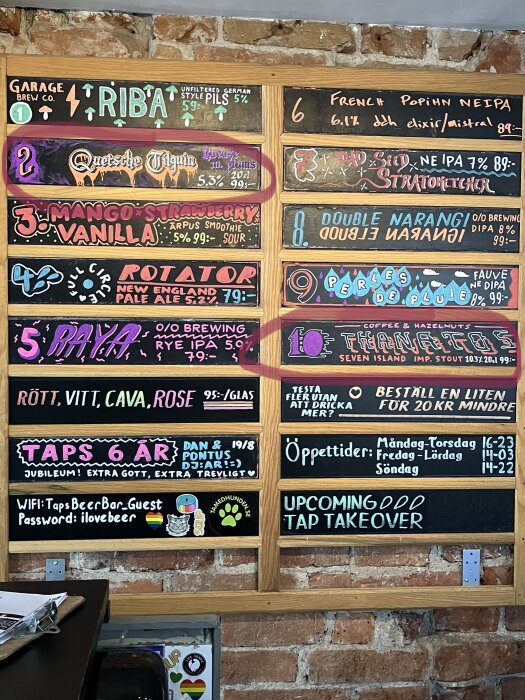 GARAGE
BREW CO.
1
RIBA
UNFILTERED GERMAN
STYLE PILS 5%
59:-
2
Quetsche Tilquin
5.3%
20cl
99:-
3.
MANGO STRAWBERRY
VANILLA
ĀRPUS SMOOTHIE
5% 99:- SOUR
4
FULL CIRCLE
ROTATOR
NEW ENGLAND
PALE ALE 5.2% 79:-
5
RAYA
O/O BREWING
RYE IPA 5.0%
79:-
RÖTT, VITT, CAVA, ROSE 95:-/GLAS
TAPS 6 ÅR
DAN &
PONTUS
DJ:AR!=)
19/8
JUBILEUM! EXTRA GOTT, EXTRA TREVLIGT
WIFI: TapsBeerBar_Guest
Password: ilovebeer
TAMEDHUNDIN.SE
6
FRENCH POPIHN NEIPA
6.1% ddh elixir/mistral 89:-
7
BAD SEED
NE IPA 7% 89:-
STRATOFETCHER
8.
DOUBLE NARANGI
DOUBLE NARANGI
O/O BREWING
DIPA 8%
99:-
9
PERLES
DE PLUIE
FAUVE
NEDIPA
8% 99:-
10
COFFEE & HAZELNUTS
THANATOS
SEVEN ISLAND IMP. STOUT 10.3% 20cl 99:-
TESTA
FLER UTAN
ATT DRICKA
MER?
BESTÄLL EN LITEN
FÖR 20 KR MINDRE
Öppettider:
Måndag-Torsdag 16-23
Fredag-Lördag 14-03
Söndag 14-22
UPCOMING
TAP TAKEOVER